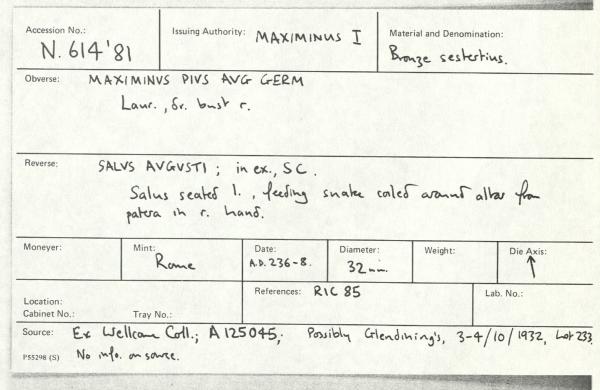 Accession No.: N. 614'81
Issuing Authority: MAXIMINUS I
Material and Denomination: Bronze sestertius.
Obverse: MAXIMINVS PIVS AVG GERM
Laur., dr. bust r.
Reverse: SALVS AVGVSTI; in ex., SC.
Salus seated l., feeding snake coiled around altar from
patera in r. hand.
Moneyer:
Mint: Rome
Date: A.D. 236-8.
Diameter: 32mm.
Weight:
Die Axis: ↑
Location:
Cabinet No.: Tray No.:
References: RIC 85
Lab. No.:
Source: Ex Wellcome Coll.; A125045; Possibly Glendining's, 3-4/10/1932, Lot 233.
P55298 (S) No info. on source.